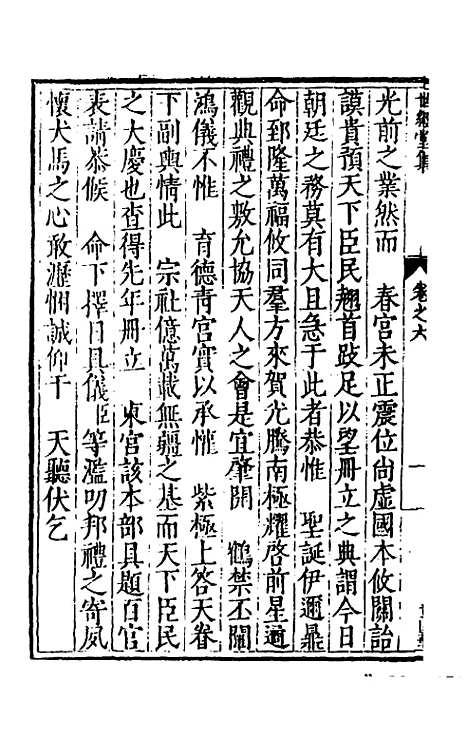 世經堂集
卷之六
一
光前之業然而　春宮未正震位尚虛國本攸關詒
謨貴預天下臣民翹首跂足以望冊立之典謂今日
朝廷之務莫有大且急于此者恭惟　聖誕伊邇鼎
命郅隆萬福攸同羣方來賀光騰南極耀啓前星適
觀典禮之敷允協天人之會是宜肇開　鶴禁丕闡
鴻儀不惟　育德青宮實以承惟　紫極上答天眷
下副輿情此　宗社億萬載無疆之基而天下臣民
之大慶也查得先年冊立　東宮該本部具題百官
表請恭候　命下擇日具儀臣等濫叨邦禮之寄夙
懷犬馬之心敢瀝悃誠仰干　天聽伏乞